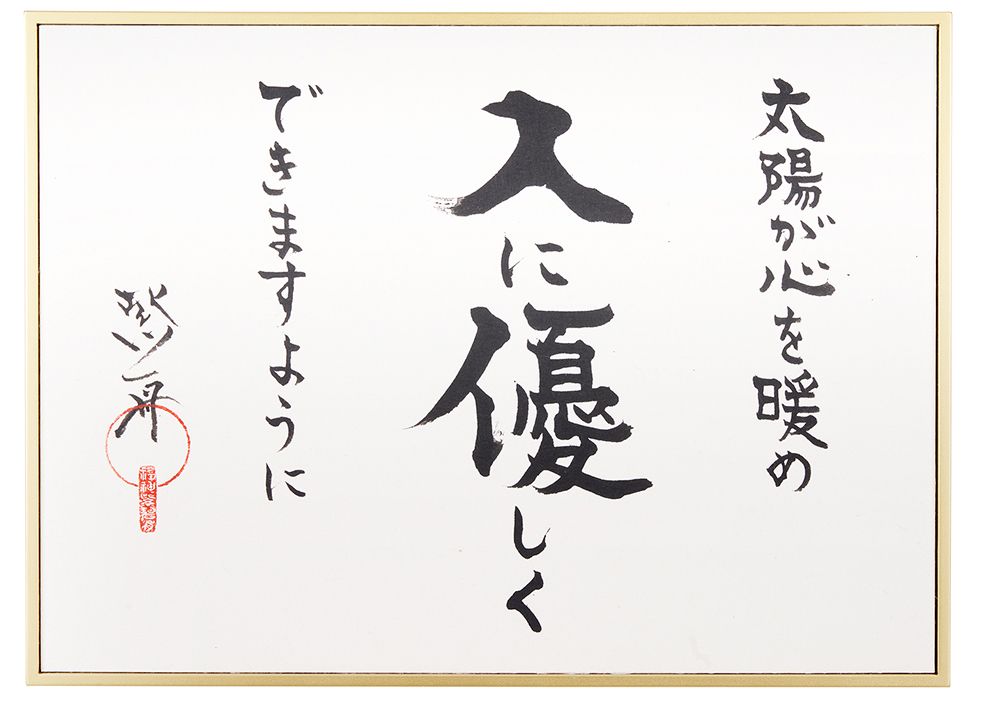 太陽が心を暖め
人に優しく
できますように